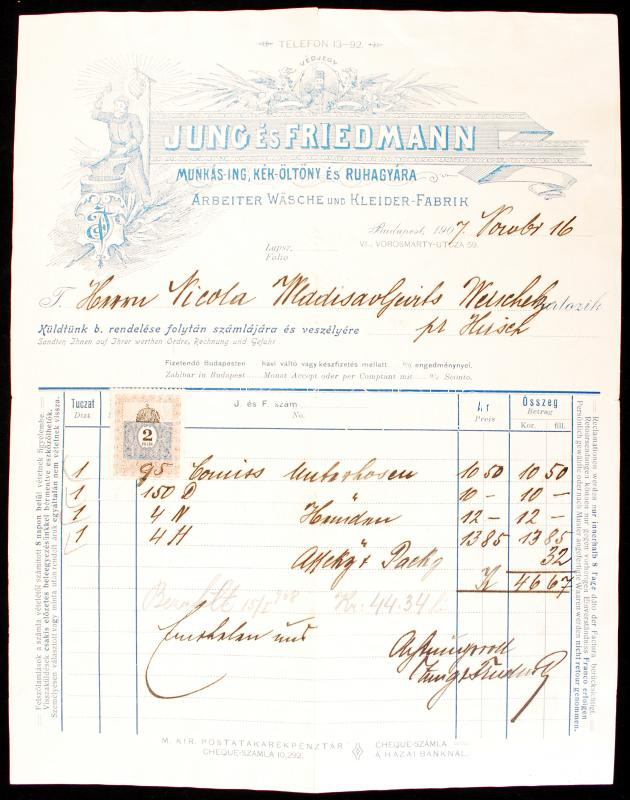 TELEFON 13-92.
VÉDJEGY
JUNG ÉS FRIEDMANN
MUNKÁS-ING, KÉK-ÖLTÖNY ÉS RUHAGYÁRA
ARBEITER WÄSCHE UND KLEIDER-FABRIK
Budapest, 1907. Novbr 16
VI., VÖRÖSMARTY-UTCZA 59.
Lapsz.
Folio
T. Herrn Nicola
pr Hirsch
Küldtünk b. rendelése folytán számlájára és veszélyére
Sandten Ihnen auf Ihrer werthen Ordre, Rechnung und Gefahr
Fizetendő Budapesten havi váltó vagy készfizetés mellett % engedménynyel.
Zahlbar in Budapest Monat Accept oder per Comptant mit % Sconto.
Tuczat J. és F. szám Ár Összeg
Dtzt. No. Preis Betrag
Kor. fill.
2
1 95 Comiss Unterhosen 10 50 10 50
1 150 D 10 — 10 —
1 4 N Hemden 12 — 12 —
1 4 H 13 85 13 85
32
K 46 67
Bezahlt 15/I 908 Kr. 44.34
und
Achtungsvoll
Jung & Friedmann
Felszólamlások a számla vételétől számított 8 napon belül vétetnek figyelembe.
Visszaküldések csakis előzetes beleegyezésünkkel bérmentve eszközölhetők.
Személyesen választott vagy minta után rendelt áruk egyáltalán nem vétetnek vissza.
Reclamationen werden nur innerhalb 8 Tage dato der Factura berücksichtigt.
Retoursendungen können nur gegen vorherigen Einverständniss Franco erfolgen
Persönlich gewählte oder nach Muster angefertigte Waaren werden nicht retour genommen.
M. KIR. POSTATAKARÉKPÉNZTÁR
CHEQUE-SZÁMLA 10,292.
CHEQUE-SZÁMLA
A HAZAI BANKNÁL.